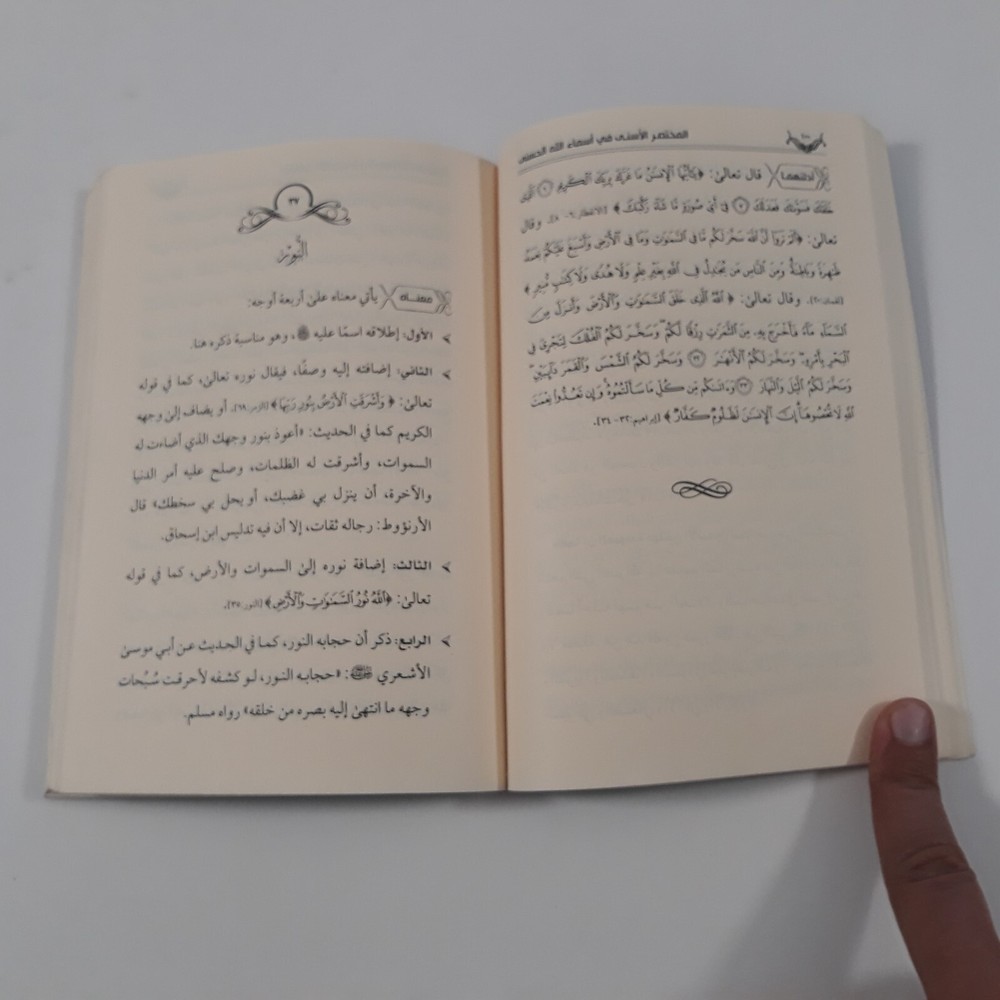 المختصر الأسنى في أسماء الله الحسنى
أدلتهما قال تعالى: ﴿يَٰٓأَيُّهَا ٱلْإِنسَٰنُ مَا غَرَّكَ بِرَبِّكَ ٱلْكَرِيمِ ۝٦ ٱلَّذِى
خَلَقَكَ فَسَوَّىٰكَ فَعَدَلَكَ ۝٧ فِىٓ أَىِّ صُورَةٍ مَّا شَآءَ رَكَّبَكَ﴾ [الانفطار: ٦-٨]. وقال
تعالى: ﴿أَلَمْ تَرَوْا۟ أَنَّ ٱللَّهَ سَخَّرَ لَكُم مَّا فِى ٱلسَّمَٰوَٰتِ وَمَا فِى ٱلْأَرْضِ وَأَسْبَغَ عَلَيْكُمْ نِعَمَهُۥ
ظَٰهِرَةً وَبَاطِنَةً وَمِنَ ٱلنَّاسِ مَن يُجَٰدِلُ فِى ٱللَّهِ بِغَيْرِ عِلْمٍ وَلَا هُدًى وَلَا كِتَٰبٍ مُّنِيرٍ﴾
[لقمان: ٢٠]. وقال تعالى: ﴿ٱللَّهُ ٱلَّذِى خَلَقَ ٱلسَّمَٰوَٰتِ وَٱلْأَرْضَ وَأَنزَلَ مِنَ
ٱلسَّمَآءِ مَآءً فَأَخْرَجَ بِهِۦ مِنَ ٱلثَّمَرَٰتِ رِزْقًا لَّكُمْ وَسَخَّرَ لَكُمُ ٱلْفُلْكَ لِتَجْرِىَ فِى
ٱلْبَحْرِ بِأَمْرِهِۦ وَسَخَّرَ لَكُمُ ٱلْأَنْهَٰرَ ۝٣٢ وَسَخَّرَ لَكُمُ ٱلشَّمْسَ وَٱلْقَمَرَ دَآئِبَيْنِ
وَسَخَّرَ لَكُمُ ٱلَّيْلَ وَٱلنَّهَارَ ۝٣٣ وَءَاتَىٰكُم مِّن كُلِّ مَا سَأَلْتُمُوهُ وَإِن تَعُدُّوا۟ نِعْمَتَ
ٱللَّهِ لَا تُحْصُوهَآ إِنَّ ٱلْإِنسَٰنَ لَظَلُومٌ كَفَّارٌ﴾ [إبراهيم: ٣٢-٣٤].
٣٧
النُّور
معناه يأتي معناه على أربعة أوجه:
الأول: إطلاقه اسمًا عليه ﷻ، وهو مناسبة ذكره هنا.
الثاني: إضافته إليه وصفًا، فيقال نوره تعالى، كما في قوله
تعالى: ﴿وَأَشْرَقَتِ ٱلْأَرْضُ بِنُورِ رَبِّهَا﴾ [الزمر: ٦٩]. أو يضاف إلى وجهه
الكريم كما في الحديث: «أعوذ بنور وجهك الذي أضاءت له
السموات، وأشرقت له الظلمات، وصلح عليه أمر الدنيا
والآخرة، أن ينزل بي غضبك، أو يحل بي سخطك» قال
الأرنؤوط: رجاله ثقات، إلا أن فيه تدليس ابن إسحاق.
الثالث: إضافة نوره إلى السموات والأرض، كما في قوله
تعالى: ﴿ٱللَّهُ نُورُ ٱلسَّمَٰوَٰتِ وَٱلْأَرْضِ﴾ [النور: ٣٥].
الرابع: ذكر أن حجابه النور، كما في الحديث عن أبي موسى
الأشعري ﵁: «حجابه النور، لو كشفه لأحرقت سُبُحات
وجهه ما انتهى إليه بصره من خلقه» رواه مسلم.